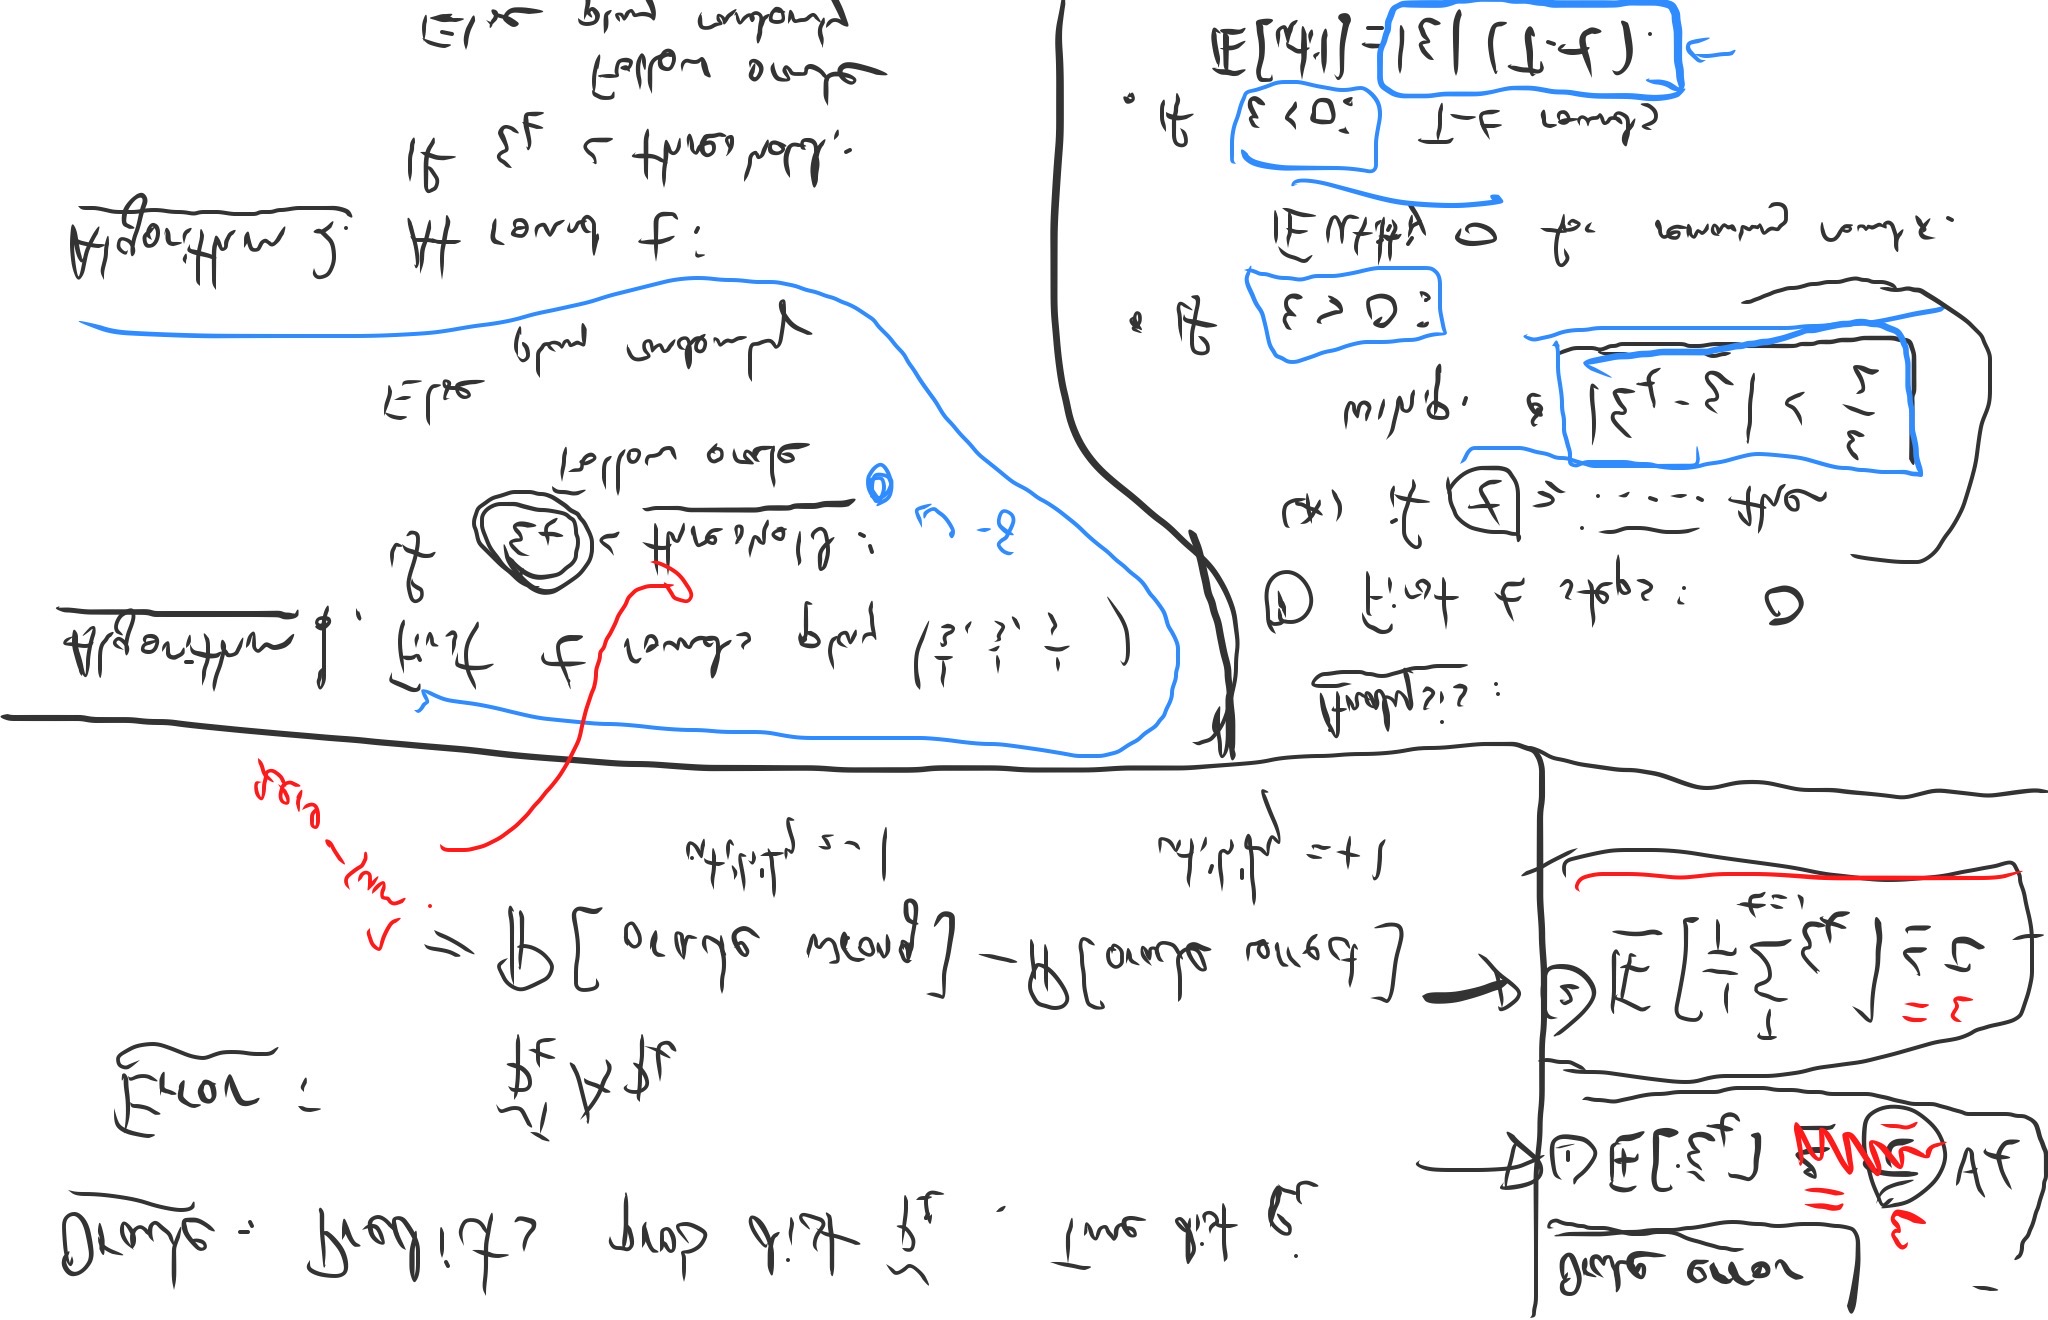 Oracle. Predicts prob dist p̃_t. True dist p_t
Error: p̃_t^T A p_t
= P[oracle wrong] - P[oracle correct]
utility = -1 utility = +1
zero-sum?
Oracle error
① E[ε_t] = ε ∀t
② E[1/T Σ_{t=1}^T ε_t] ≤ τ
= ε
Algorithm 1. First t rounds play (1/3, 1/3, 1/3)
if ε_t < threshold: 0 -δ
Follow oracle
Else
play randomly
Algorithm 2. At round t:
If ε_t < threshold:
Follow oracle
Else play randomly
Analysis:
① First t steps: 0
(*) if t ≥ ...... then
whp. |ε_t - ε| < ε/2
• If ε > 0:
E Utility 0 for remaining rounds.
• if ε < 0: T-t rounds
E[util] = |ε| (T-t).